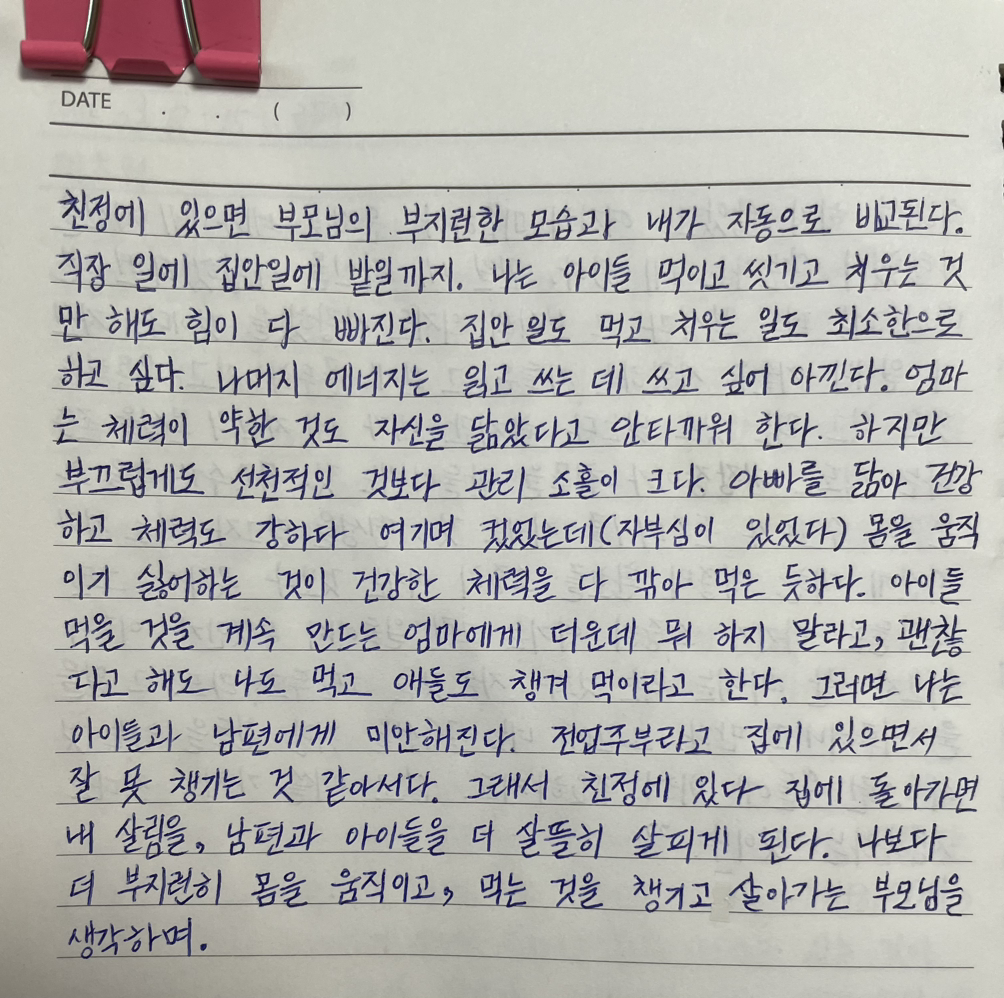 DATE . . ( )
친정에 있으면 부모님의 부지런한 모습과 내가 자동으로 비교된다.
직장 일에 집안일에 밭일까지. 나는 아이들 먹이고 씻기고 치우는 것
만 해도 힘이 다 빠진다. 집안 일도 먹고 치우는 일도 최소한으로
하고 싶다. 나머지 에너지는 읽고 쓰는 데 쓰고 싶어 아낀다. 엄마
는 체력이 약한 것도 자신을 닮았다고 안타까워 한다. 하지만
부끄럽게도 선천적인 것보다 관리 소홀이 크다. 아빠를 닮아 건강
하고 체력도 강하다 여기며 컸었는데(자부심이 있었다) 몸을 움직
이기 싫어하는 것이 건강한 체력을 다 깎아 먹은 듯하다. 아이들
먹을 것을 계속 만드는 엄마에게 더운데 뭐 하지 말라고, 괜찮
다고 해도 나도 먹고 애들도 챙겨 먹이라고 한다. 그러면 나는
아이들과 남편에게 미안해진다. 전업주부라고 집에 있으면서
잘 못 챙기는 것 같아서다. 그래서 친정에 있다 집에 돌아가면
내 살림을, 남편과 아이들을 더 살뜰히 살피게 된다. 나보다
더 부지런히 몸을 움직이고, 먹는 것을 챙기고 살아가는 부모님을
생각하며.